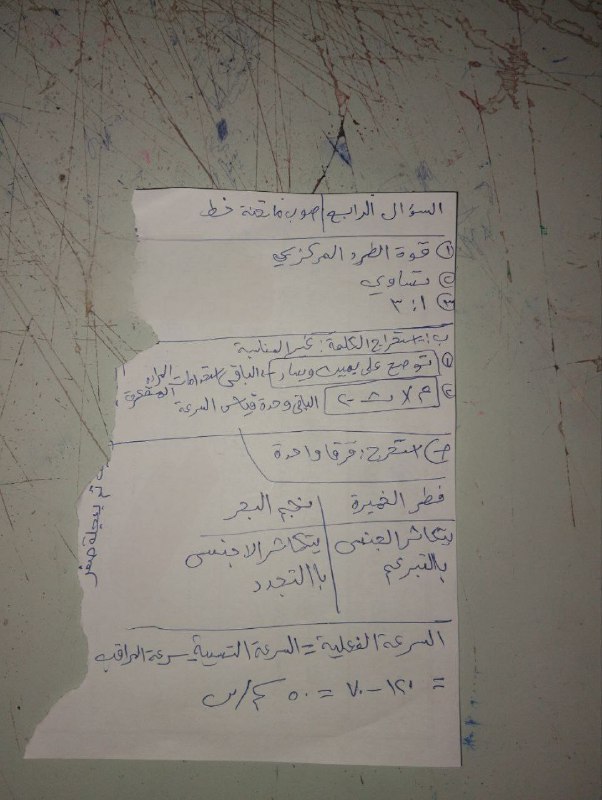 السؤال الرابع / صوب ما تحته خط
① قوة الطرد المركزي
② تساوي
③ ١ : ٣
ب: استخراج الكلمة: غير المناسبة
① توضع على يمين ويسار - الباقى استخدامات المرايا المقعرة
② م/ث٢ الباقى وحدة قياس السرعة
ج) استخرج: فرقا واحدة
فطر الخميرة | نجم البحر
يتكاثر الجنسى بالتبرعم | يتكاثر الاجنسى باالتجدد
السرعة الفعلية = السرعة النسبية - سرعة المراقب
= ١٢٠ - ٧٠ = ٥٠ كم/س
بعجلة صفر